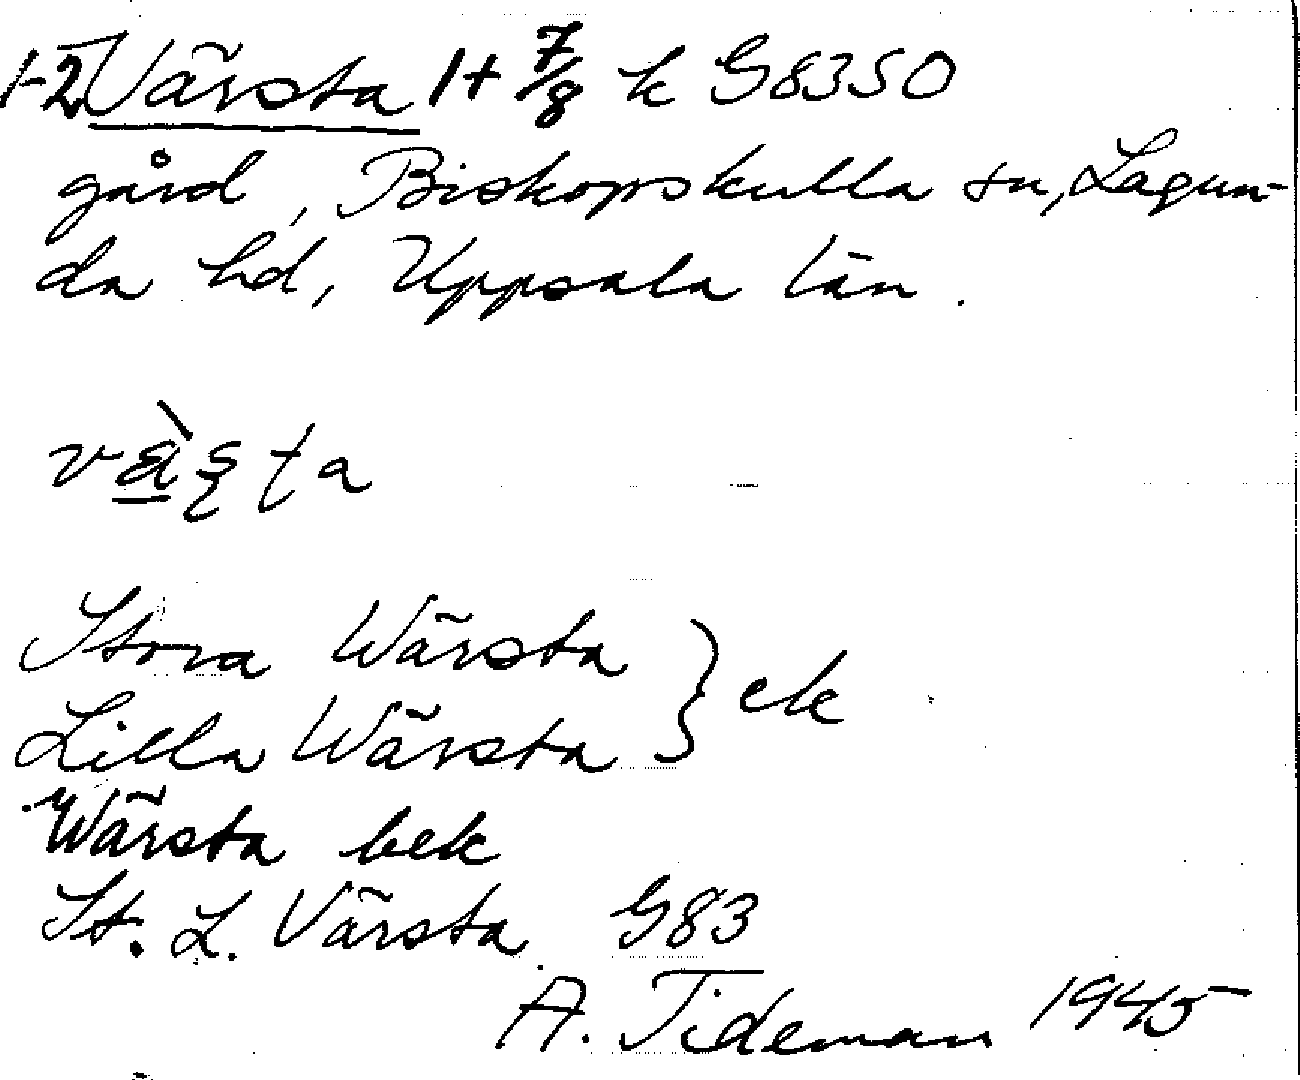 1-2 Värsta 1+ 7/8 k G8350
gård, Biskopskulla sn, Lagun-
da hd, Uppsala län.
Stora Wärsta
Lilla Wärsta } ek
Wärsta bek
St. L. Värsta G83
A. Tideman 1945